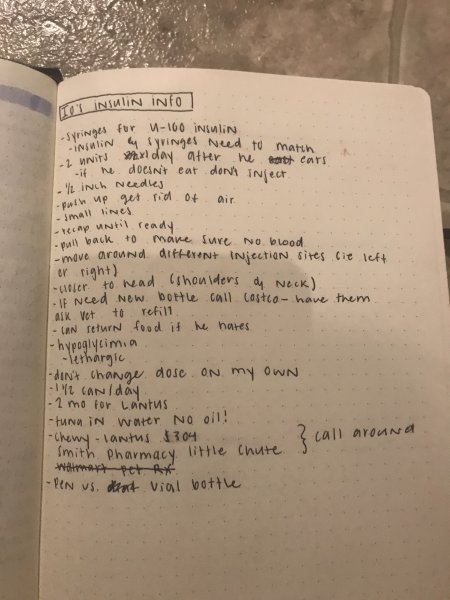 Io's insulin info
-syringes for U-100 insulin
-insulin & syringes need to match
-2 units /day after he eats
-if he doesn't eat don't inject
-1/2 inch needles
-push up get rid of air
-small lines
-recap until ready
-pull back to make sure no blood
-move around different injection sites (ie left
or right)
-closer to head (shoulders & neck)
-if need new bottle call costco - have them
ask vet to refill
-can return food if he hates
-hypoglycimia
-lethargic
-don't change dose on my own
-1 1/2 can/day
-2 mo for Lantus
-tuna in water no oil!
-chewy - lantus $304 } call around
smith pharmacy little chute
walmart pet RX
-pen vs. vial bottle